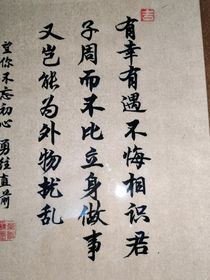 有幸有遇不悔相识君
子周而不比立身做事
又岂能为外物扰乱
望你不忘初心 勇往直前